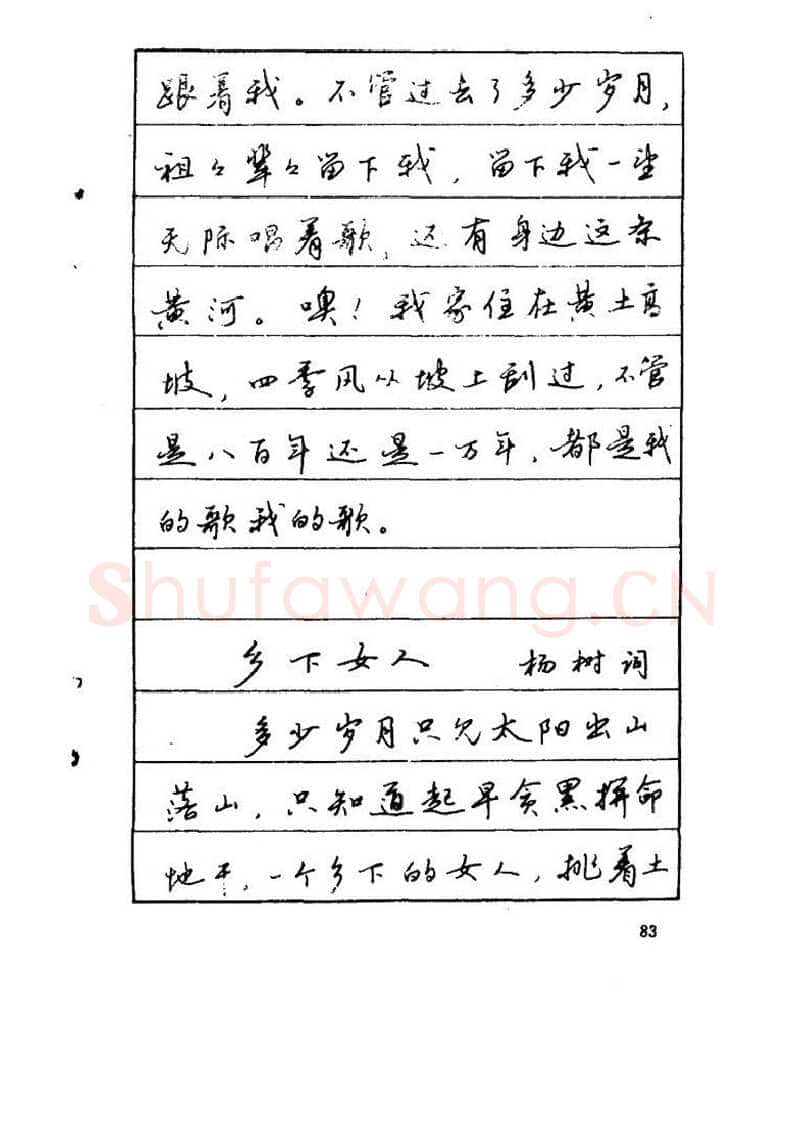 跟着我。不管过去了多少岁月，
祖々辈々留下我，留下我一望
无际唱着歌，还有身边这条
黄河。噢！我家住在黄土高
坡，四季风从坡上刮过，不管
是八百年还是一万年，都是我
的歌我的歌。
Shufawang.CN
乡下女人 杨树词
多少岁月只见太阳出山
落山，只知道起早贪黑拼命
地干，一个乡下的女人，挑着土
83